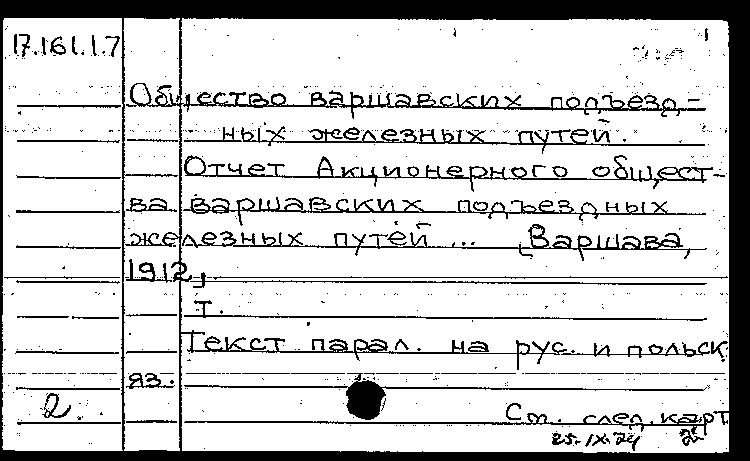 17.161.1.7
Общество варшавских подъезд-
ных железных путей.
Отчет Акционерного общест-
ва варшавских подъездных
железных путей ... [Варшава,
1912]
т.
Текст парал. на рус. и польск
яз.
2.
См. след. карт
25.IX.74